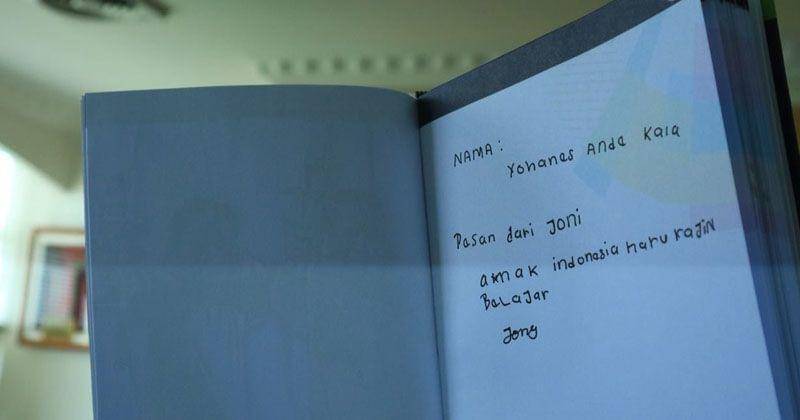 NAMA:
Yohanes Ande Kala
Pasan dari JONi
anak indonesia haru rajiN
BeLaJar
Jony